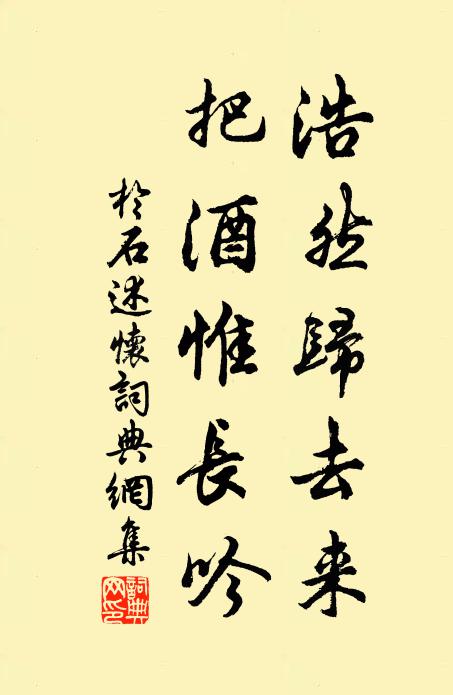 浩然歸去来
把酒惟長吟
於石述懷詞典網集
詞典网印